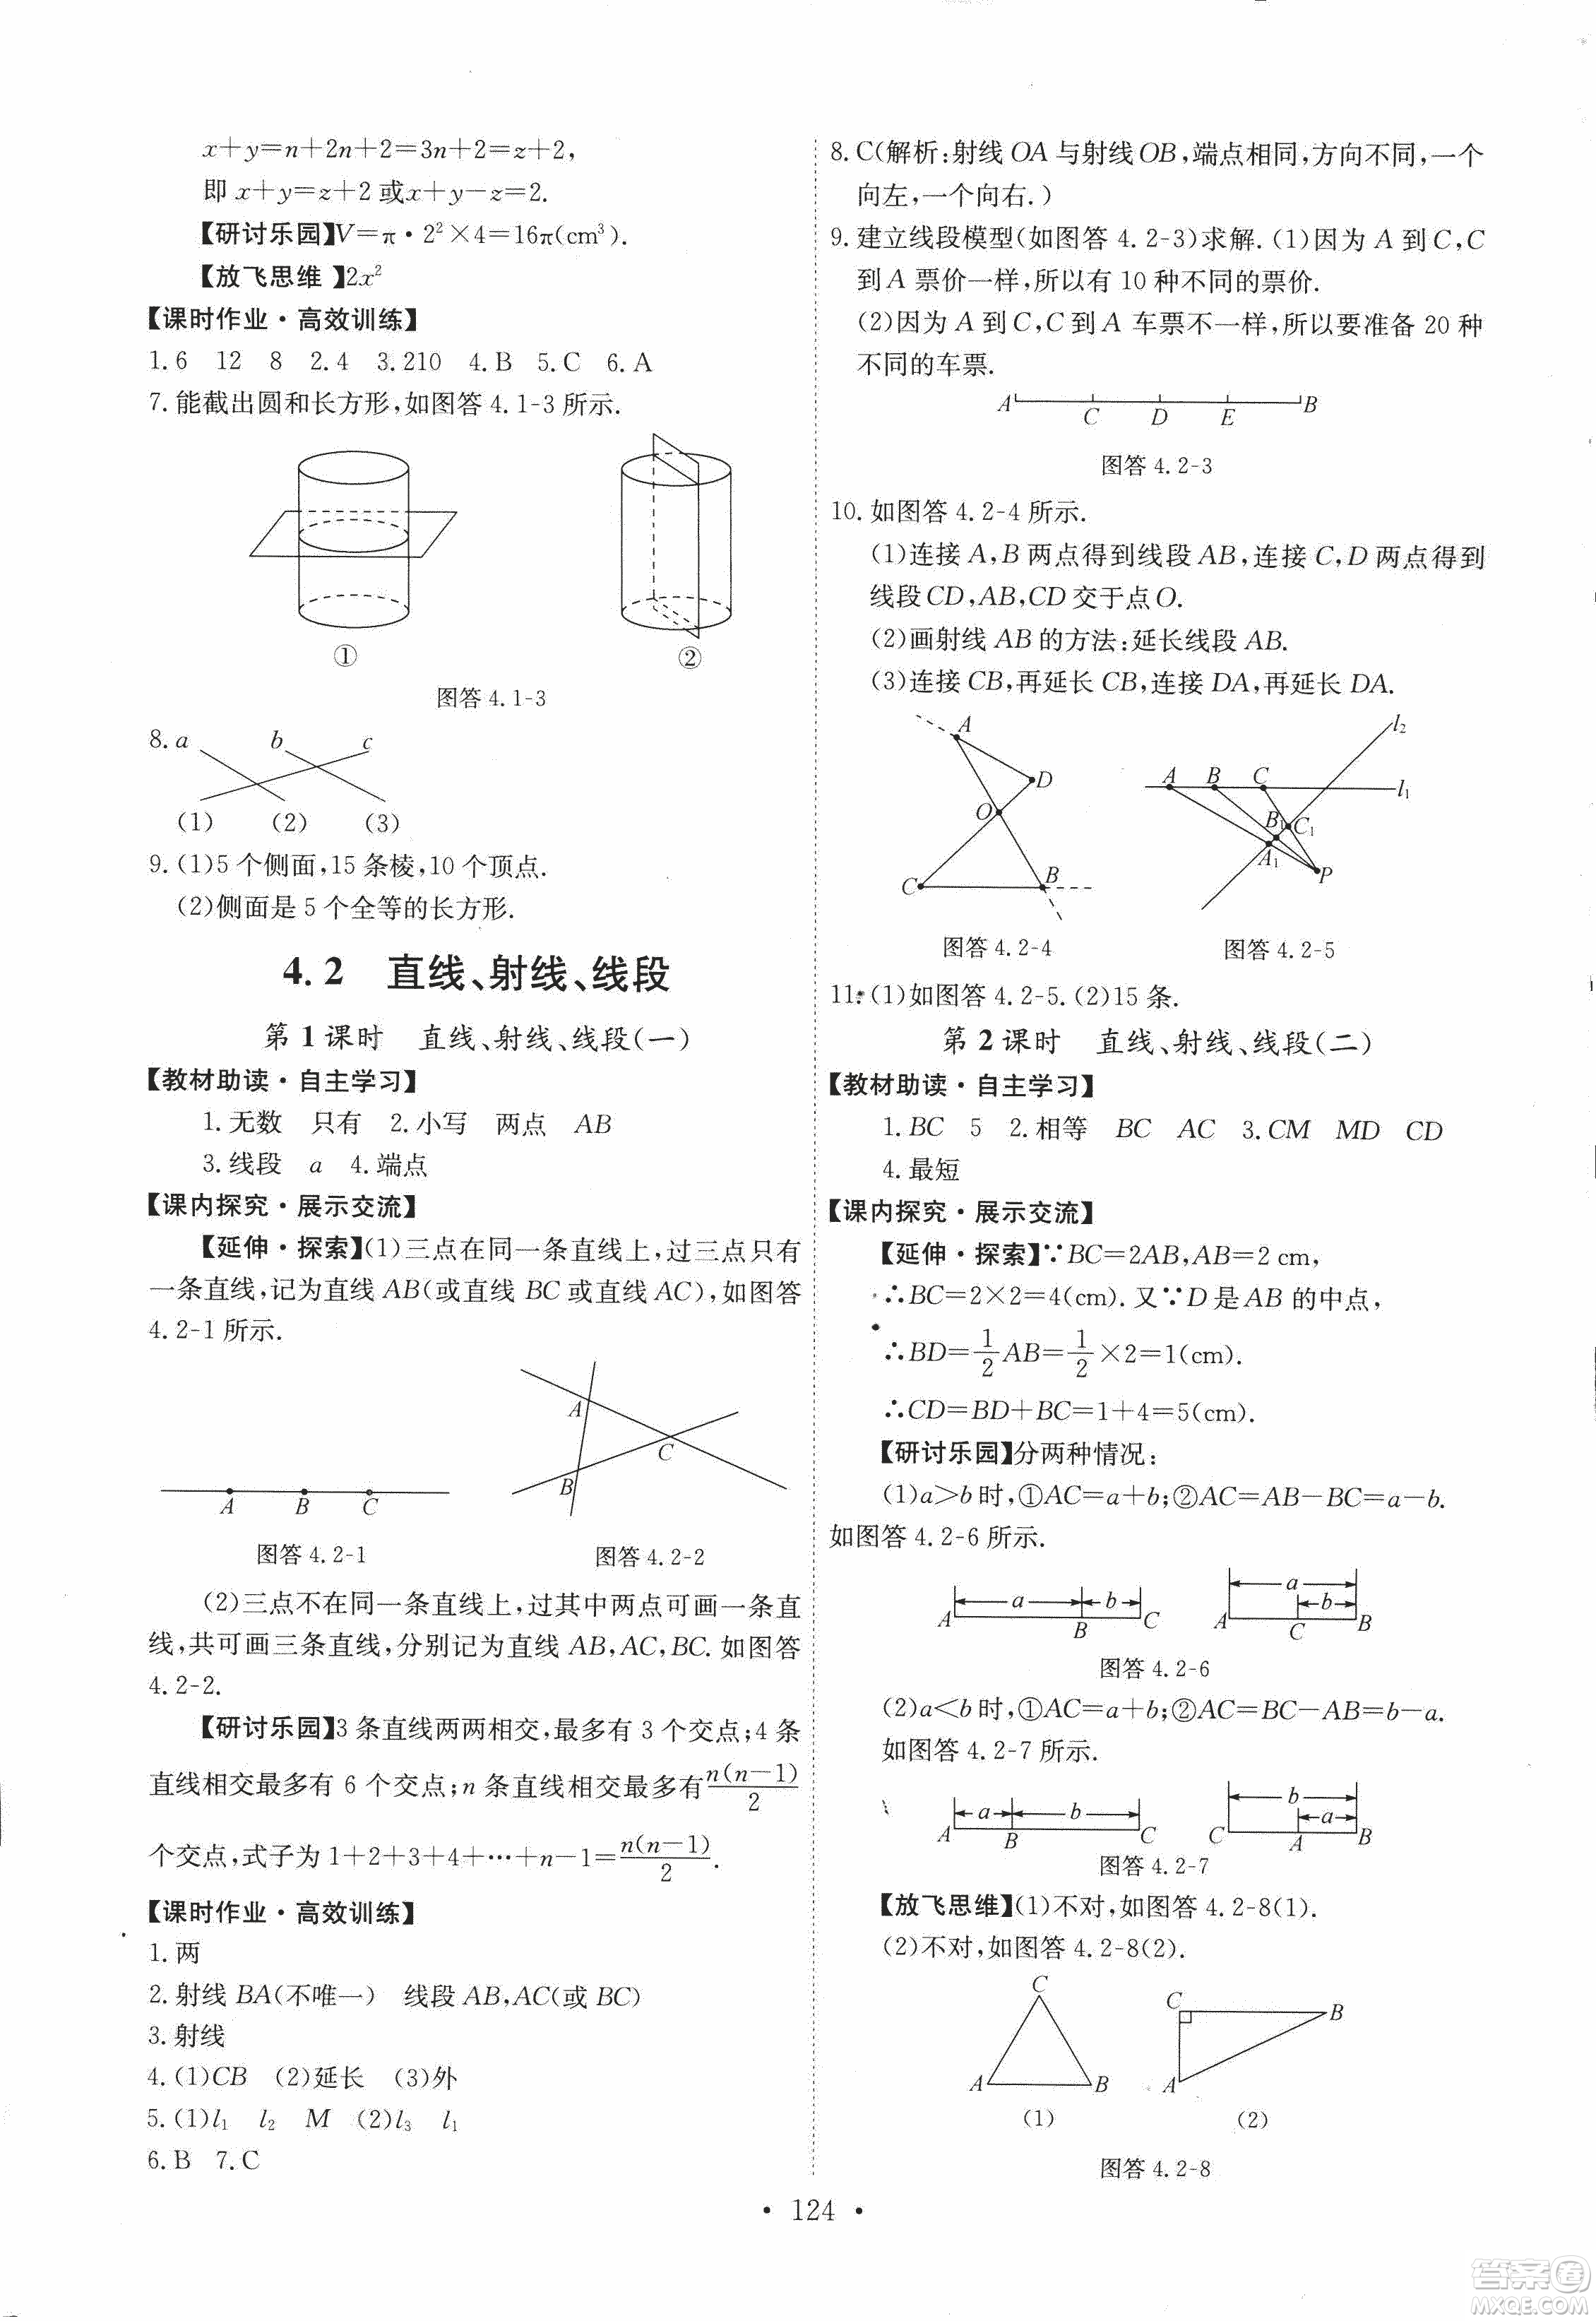 x+y=n+2n+2=3n+2=z+2,
即 x+y=z+2 或x+y-z=2.
【研讨乐园】V=π·2²×4=16π(cm³).
【放飞思维】2x²
【课时作业·高效训练】
1.6 12 8 2.4 3.210 4.B 5.C 6.A
7.能截出圆和长方形,如图答4.1-3所示.
① ②
图答4.1-3
8.a b c
(1) (2) (3)
9.(1)5个侧面,15条棱,10个顶点.
(2)侧面是5个全等的长方形.
4.2 直线、射线、线段
第1课时 直线、射线、线段(一)
【教材助读·自主学习】
1.无数 只有 2.小写 两点 AB
3.线段 a 4.端点
【课内探究·展示交流】
【延伸·探索】(1)三点在同一条直线上,过三点只有
一条直线,记为直线AB(或直线BC或直线AC),如图答
4.2-1所示.
A B C
A
B
C
图答4.2-1 图答4.2-2
(2)三点不在同一条直线上,过其中两点可画一条直
线,共可画三条直线,分别记为直线AB,AC,BC.如图答
4.2-2.
【研讨乐园】3条直线两两相交,最多有3个交点;4条
直线相交最多有6个交点;n条直线相交最多有n(n-1)/2
个交点,式子为1+2+3+4+…+n-1=n(n-1)/2.
【课时作业·高效训练】
1.两
2.射线BA(不唯一) 线段AB,AC(或BC)
3.射线
4.(1)CB (2)延长 (3)外
5.(1)l₁ l₂ M (2)l₃ l₁
6.B 7.C
8.C(解析:射线OA与射线OB,端点相同,方向不同,一个
向左,一个向右.)
9.建立线段模型(如图答4.2-3)求解.(1)因为A到C,C
到A票价一样,所以有10种不同的票价.
(2)因为A到C,C到A车票不一样,所以要准备20种
不同的车票.
A C D E B
图答4.2-3
10.如图答4.2-4所示.
(1)连接A,B两点得到线段AB,连接C,D两点得到
线段CD,AB,CD交于点O.
(2)画射线AB的方法:延长线段AB.
(3)连接CB,再延长CB,连接DA,再延长DA.
A
D
O
C
B
l₂
A B C
l₁
B₁ C₁
A₁
P
图答4.2-4 图答4.2-5
11.(1)如图答4.2-5.(2)15条.
第2课时 直线、射线、线段(二)
【教材助读·自主学习】
1.BC 5 2.相等 BC AC 3.CM MD CD
4.最短
【课内探究·展示交流】
【延伸·探索】∵BC=2AB,AB=2 cm,
∴BC=2×2=4(cm).又∵D是AB的中点,
∴BD=1/2AB=1/2×2=1(cm).
∴CD=BD+BC=1+4=5(cm).
【研讨乐园】分两种情况:
(1)a>b时,①AC=a+b;②AC=AB-BC=a-b.
如图答4.2-6所示.
a b
A B C
a
b
A C B
图答4.2-6
(2)a<b时,①AC=a+b;②AC=BC-AB=b-a.
如图答4.2-7所示.
a b
A B C
b
a
C A B
图答4.2-7
【放飞思维】(1)不对,如图答4.2-8(1).
(2)不对,如图答4.2-8(2).
C
A B
C B
A
(1) (2)
图答4.2-8
· 124 ·
答案圈
MXQE.COM